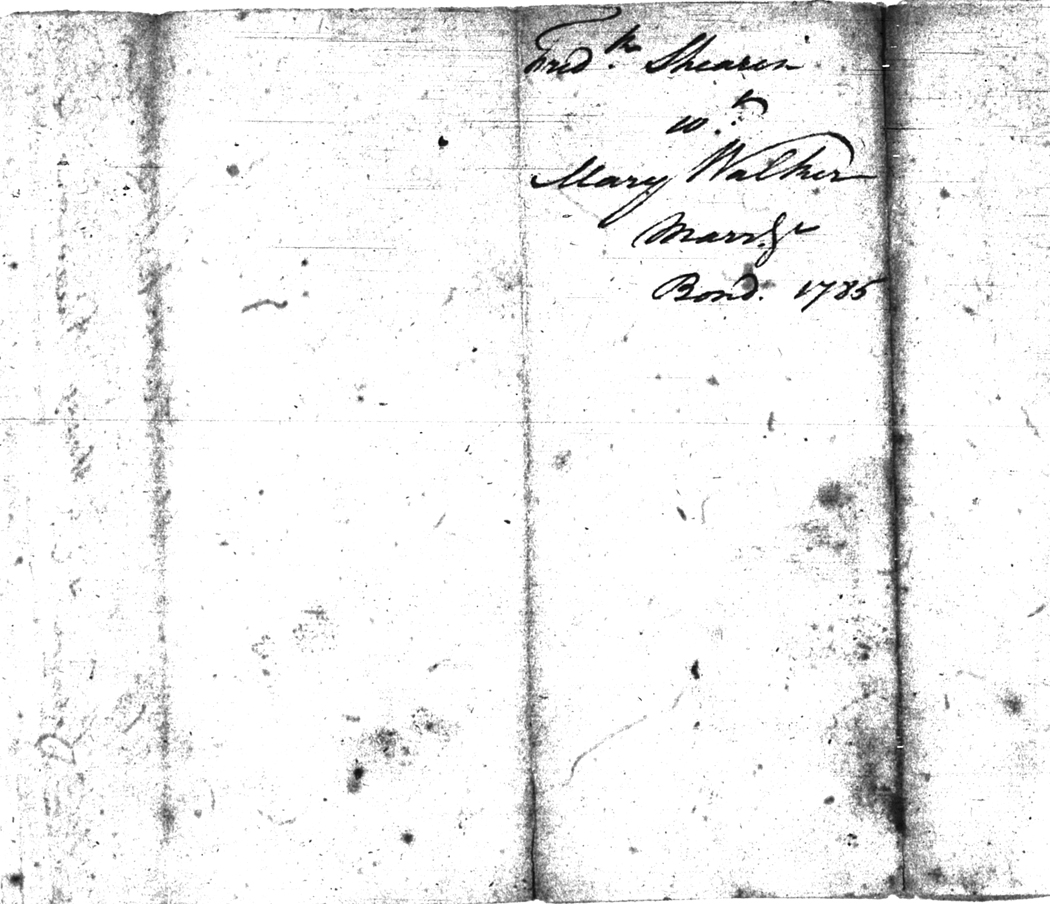 Fredk. Shearin
wt.
Mary Walker
Marrge
Bond. 1785